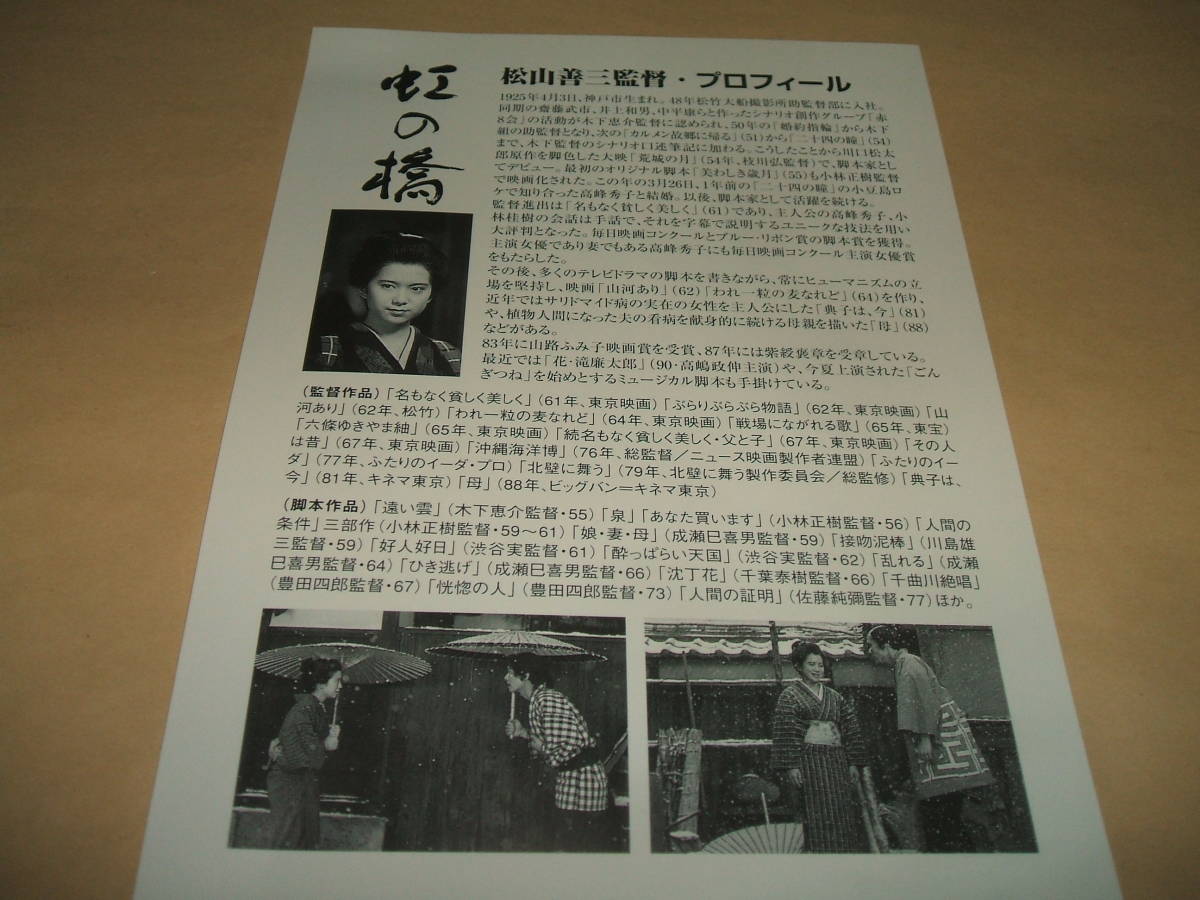 虹の橋
松山善三監督・プロフィール
1925年4月3日、神戸市生まれ。48年松竹大船撮影所助監督部に入社。
同期の齋藤武市、井上和男、中平康らと作ったシナリオ創作グループ「赤
8会」の活動が木下恵介監督に認められ、50年の「婚約指輪」から木下
組の助監督となり、次の「カルメン故郷に帰る」(51)から「二十四の瞳」(54)
まで、木下監督のシナリオ口述筆記に加わる。こうしたことから川口松太
郎原作を脚色した大映「荒城の月」(54年、枝川弘監督)で、脚本家とし
てデビュー。最初のオリジナル脚本「美わしき歳月」(55)も小林正樹監督
で映画化された。この年の3月26日、1年前の「二十四の瞳」の小豆島ロ
ケで知り合った高峰秀子と結婚。以後、脚本家として活躍を続ける。
監督進出は「名もなく貧しく美しく」(61)であり、主人公の高峰秀子、小
林桂樹の会話は手話で、それを字幕で説明するユニークな技法を用い
大評判となった。毎日映画コンクールとブルー・リボン賞の脚本賞を獲得。
主演女優であり妻でもある高峰秀子にも毎日映画コンクール主演女優賞
をもたらした。
その後、多くのテレビドラマの脚本を書きながら、常にヒューマニズムの立
場を堅持し、映画「山河あり」(62)「われ一粒の麦なれど」(64)を作り、
近年ではサリドマイド病の実在の女性を主人公にした「典子は、今」(81)
や、植物人間になった夫の看病を献身的に続ける母親を描いた「母」(88)
などがある。
83年に山路ふみ子映画賞を受賞、87年には紫綬褒章を受章している。
最近では「花・滝廉太郎」(90・高嶋政伸主演)や、今夏上演された「ごん
ぎつね」を始めとするミュージカル脚本も手掛けている。
(監督作品)「名もなく貧しく美しく」(61年、東京映画)「ぶらりぶらぶら物語」(62年、東京映画)「山
河あり」(62年、松竹)「われ一粒の麦なれど」(64年、東京映画)「戦場にながれる歌」(65年、東宝)
「六條ゆきやま紬」(65年、東京映画)「続名もなく貧しく美しく・父と子」(67年、東京映画)「その人
は昔」(67年、東京映画)「沖縄海洋博」(76年、総監督／ニュース映画製作者連盟)「ふたりのイー
ダ」(77年、ふたりのイーダ・プロ)「北壁に舞う」(79年、北壁に舞う製作委員会／総監修)「典子は、
今」(81年、キネマ東京)「母」(88年、ビッグバン＝キネマ東京)
(脚本作品)「遠い雲」(木下恵介監督・55)「泉」「あなた買います」(小林正樹監督・56)「人間の
条件」三部作(小林正樹監督・59〜61)「娘・妻・母」(成瀬巳喜男監督・59)「接吻泥棒」(川島雄
三監督・59)「好人好日」(渋谷実監督・61)「酔っぱらい天国」(渋谷実監督・62)「乱れる」(成瀬
巳喜男監督・64)「ひき逃げ」(成瀬巳喜男監督・66)「沈丁花」(千葉泰樹監督・66)「千曲川絶唱」
(豊田四郎監督・67)「恍惚の人」(豊田四郎監督・73)「人間の証明」(佐藤純彌監督・77)ほか。